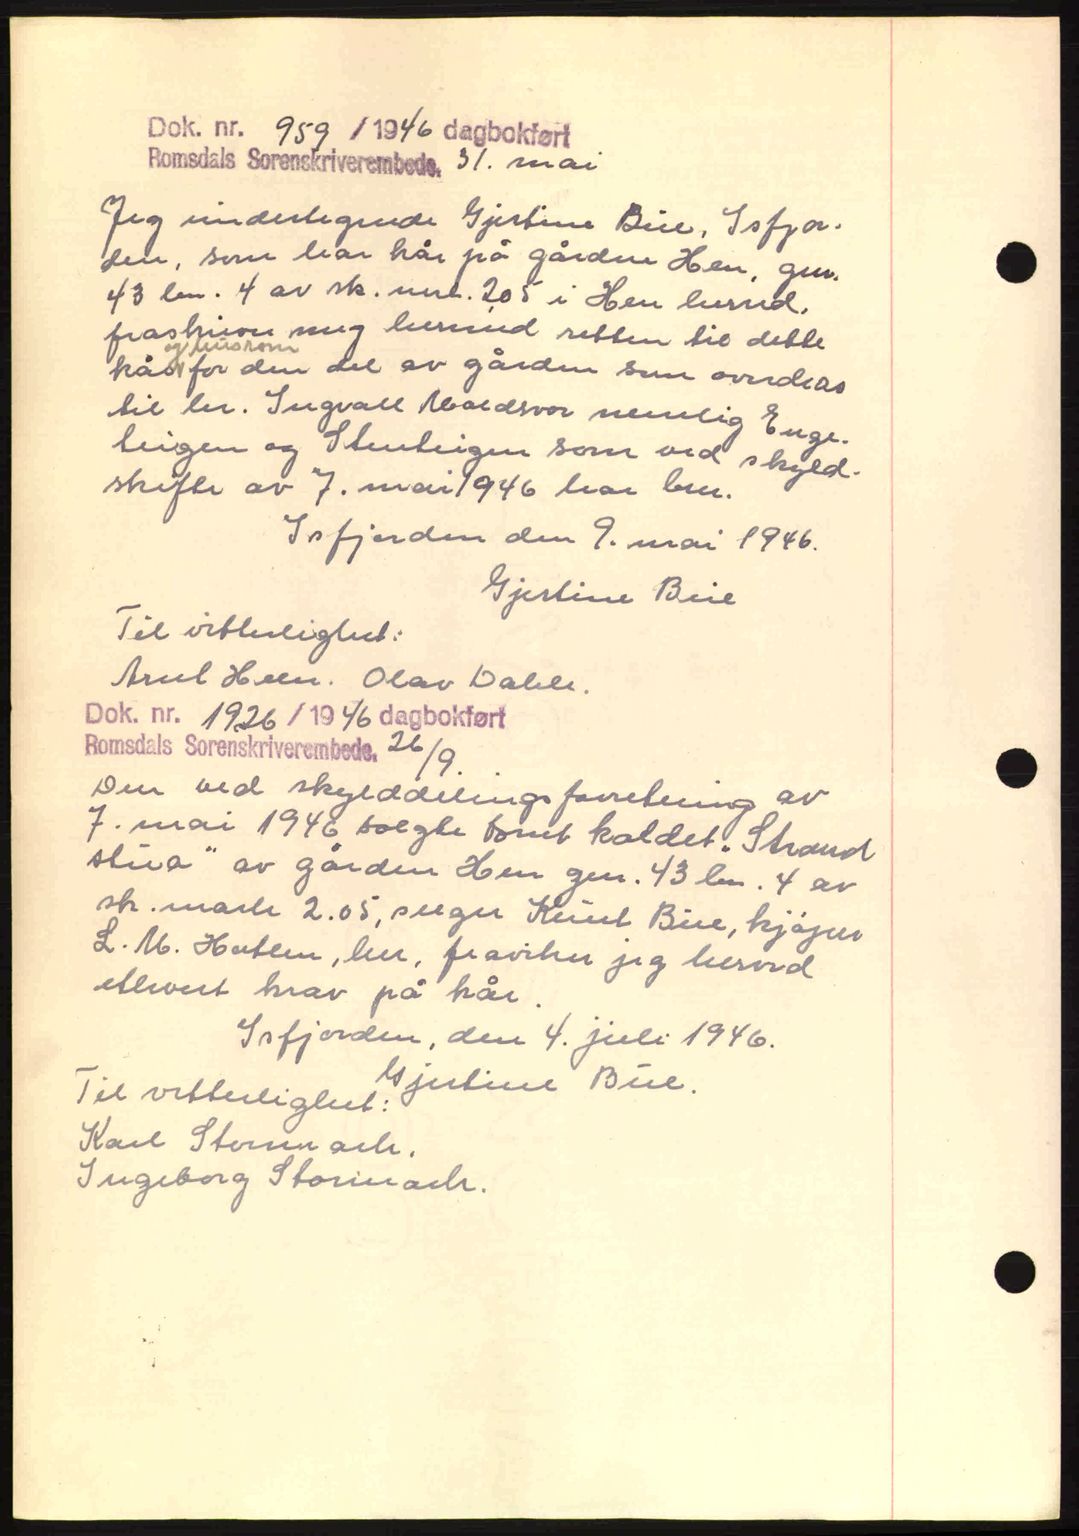 Dok. nr. 959 / 1946 dagbokført
Romsdals Sorenskriverembede. 31. mai
Jeg undertegnede Gjertine Bue, Isfjor-
den, som har kår på gården Hen, gnr.
43 bnr. 4 av sk. mrk. 2.05 i Hen herred,
fraskriver meg herved retten til dette
kår og husrom for den del av gården som overdras
til hr. Ingvall Voldsvor nemlig Enge-
teigen og Stenteigen som ved skyld-
skifte av 7. mai 1946 har bnr.
Isfjorden den 9. mai 1946.
Gjertine Bue
Til vitterlighet:
Arnt Heen. Olav Dahle.
Dok. nr. 1926 / 1946 dagbokført
Romsdals Sorenskriverembede. 26/9.
Den ved skylddelingsforretning av
7. mai 1946 solgte tomt kaldet "Strand
stua" av gården Hen gnr. 43 bnr. 4 av
sk. mark 2.05, selger Knut Bue, kjøper
L. M. Hatlen, her, fraviker jeg herved
ethvert krav på kår.
Isfjorden, den 4. juli 1946.
Gjertine Bue.
Til vitterlighet:
Karl Stormark.
Ingeborg Stormark.